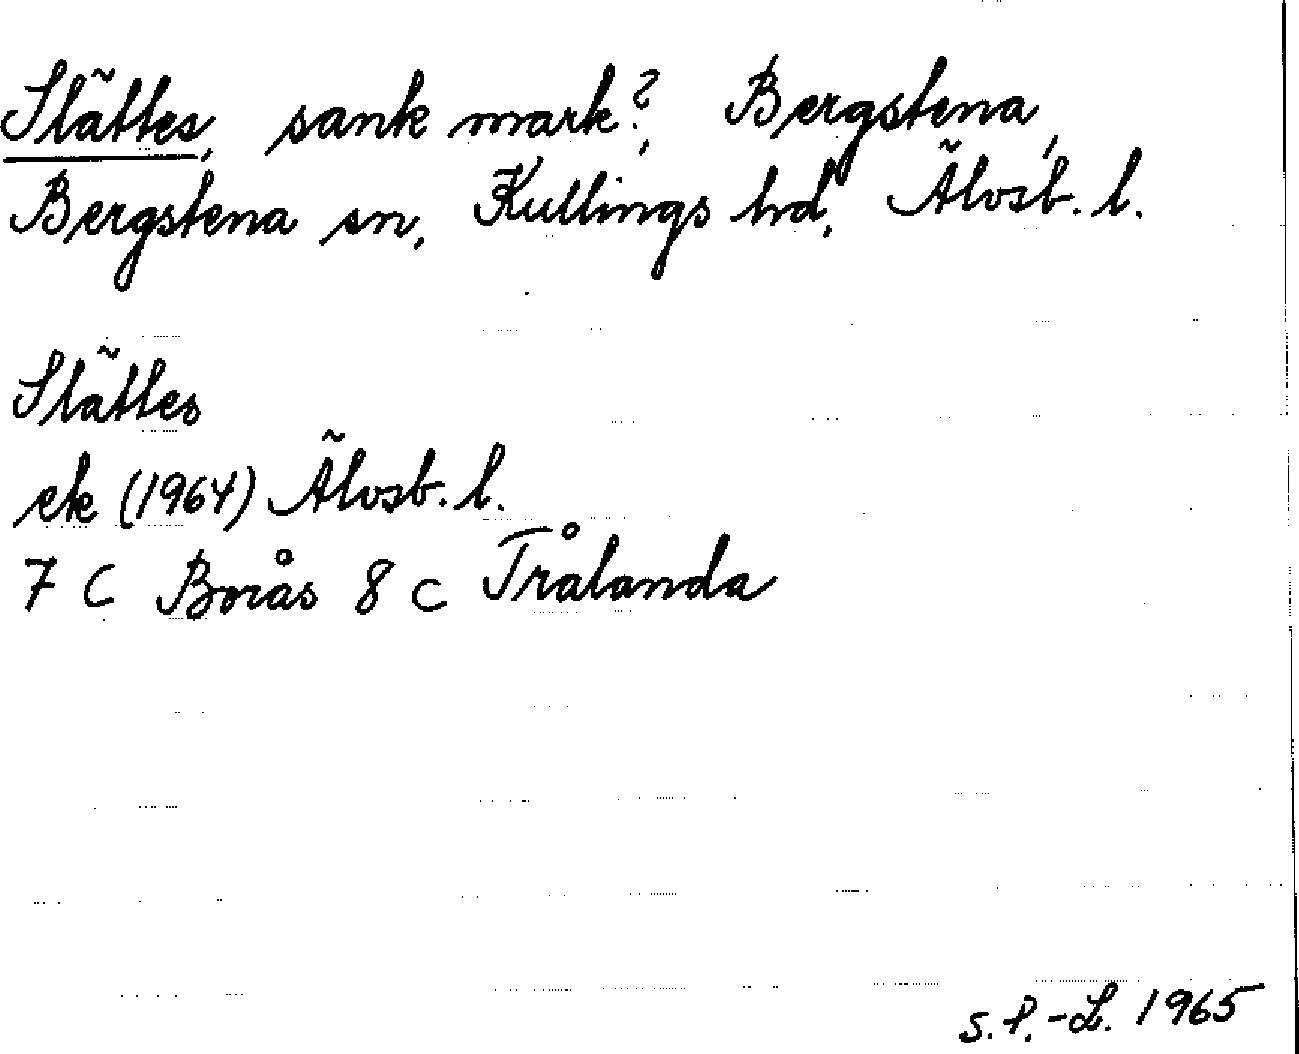 Slättes, sank mark?, Bergstena,
Bergstena sn, Kullings hd, Älvsb. l.
Slättes
ek (1964) Älvsb. l.
7 C Borås 8 C Trålanda
S.P.-L. 1965